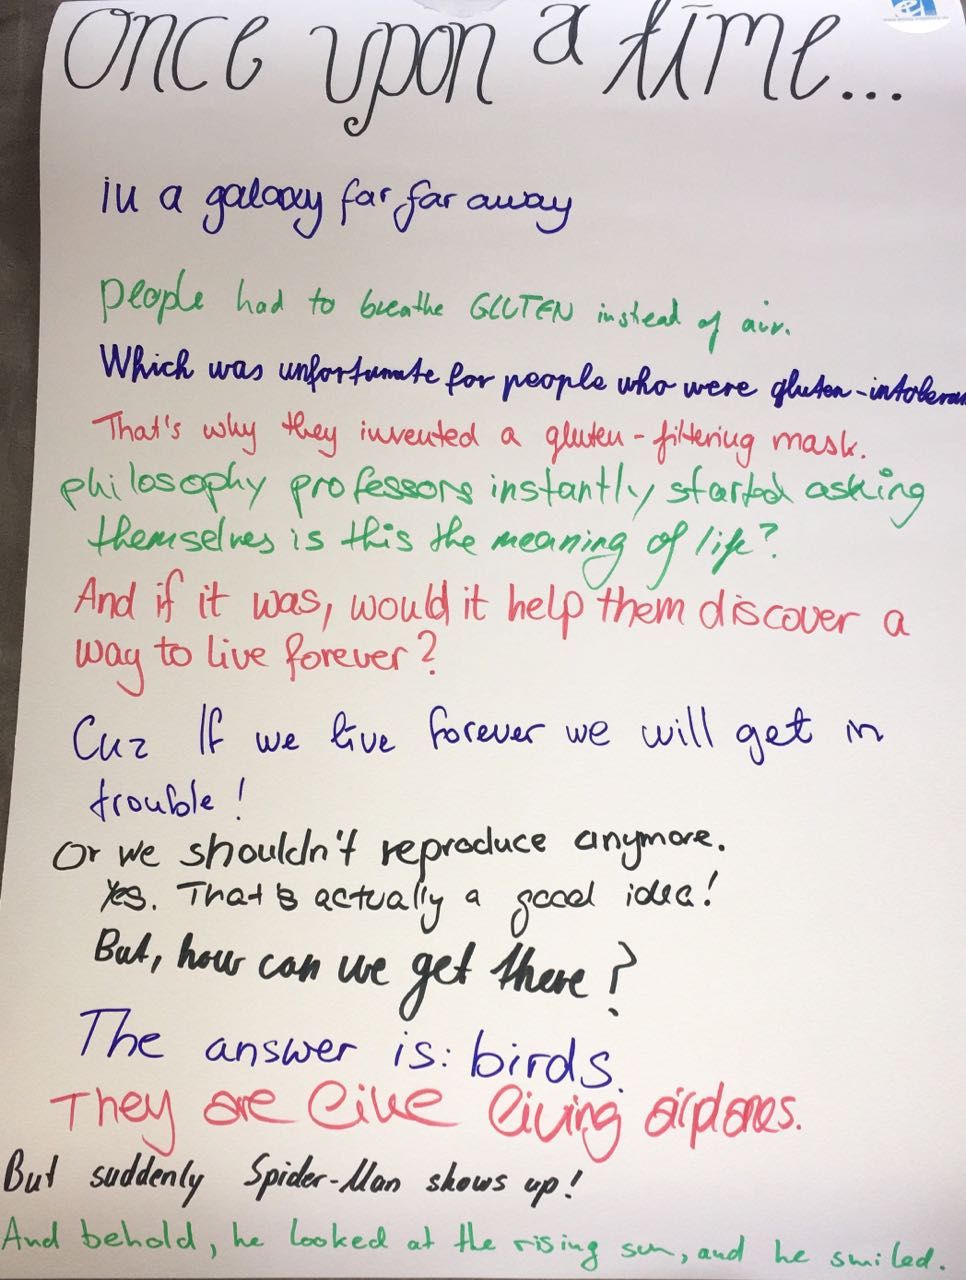 Once upon a time...
in a galaxy far far away
people had to breathe GLUTEN instead of air.
Which was unfortunate for people who were gluten-intoleran
That's why they invented a gluten-filtering mask.
philosophy professors instantly started asking
themselves is this the meaning of life?
And if it was, would it help them discover a
way to live forever?
Cuz If we live forever we will get in
trouble!
Or we shouldn't reproduce anymore.
Yes. That's actually a good idea!
But, how can we get there?
The answer is: birds.
They are like living airplanes.
But suddenly Spider-Man shows up!
And behold, he looked at the rising sun, and he smiled.